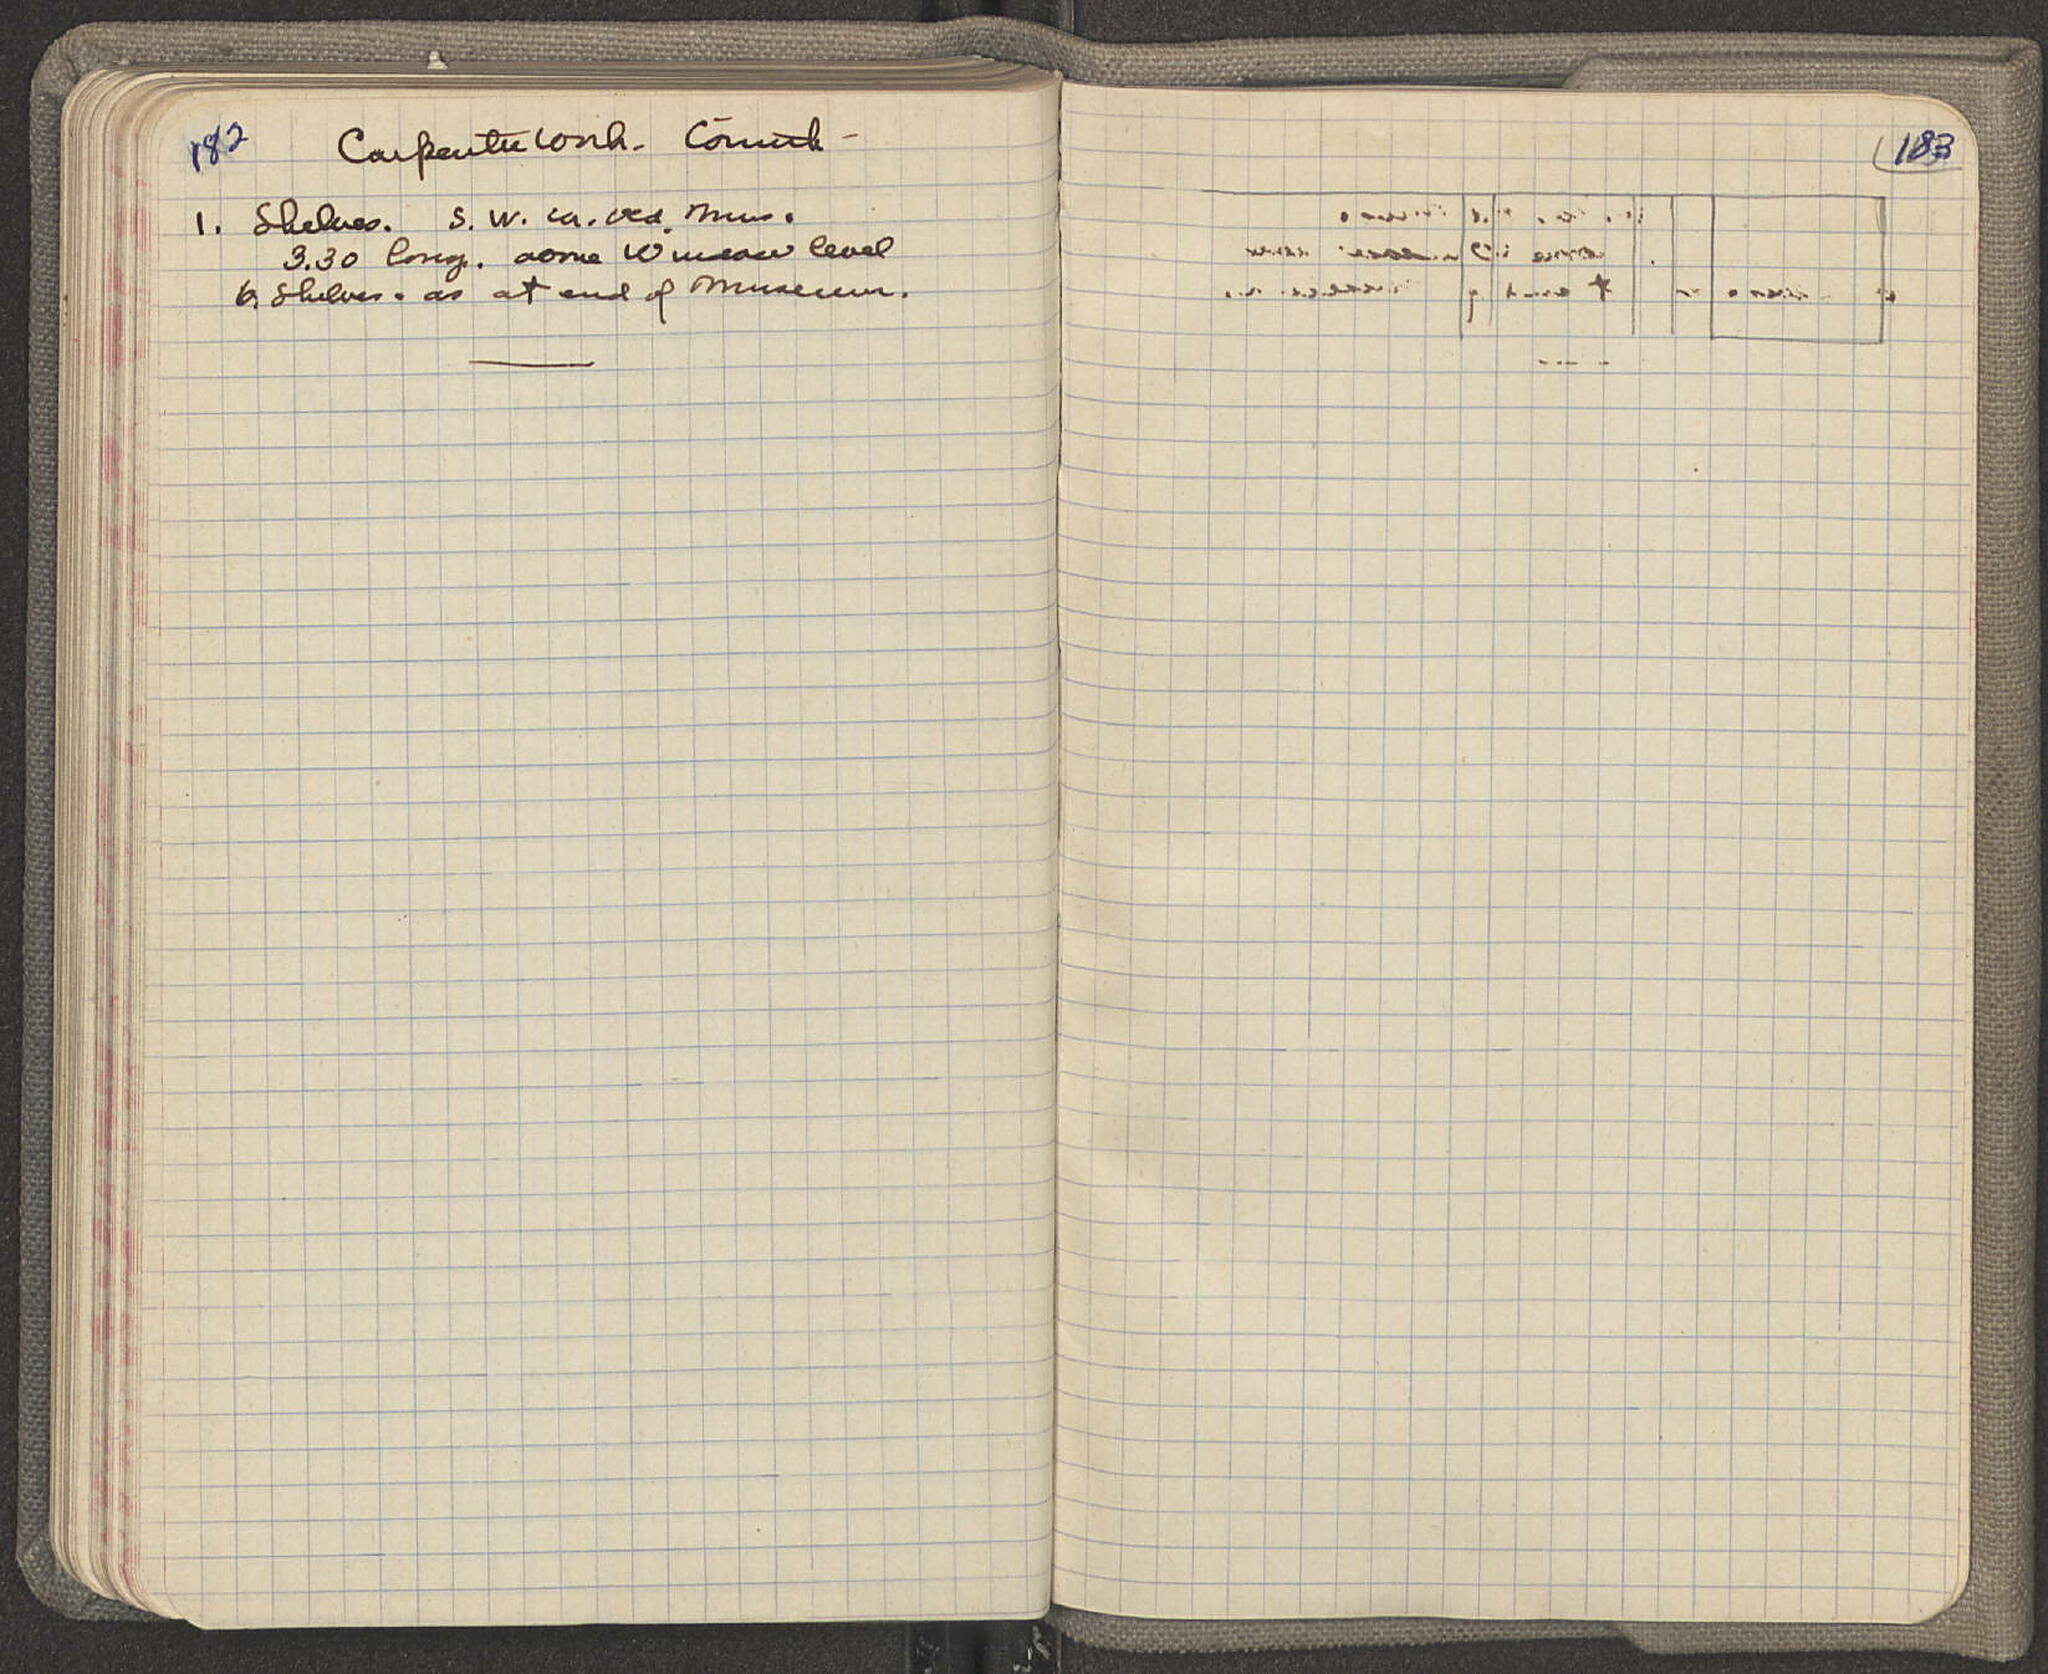 182
Carpenter work - Corinth -
1. Shelves. S. W. in. old Mus.
3.30 long. some window level
6. Shelves. as at end of Museum.
183